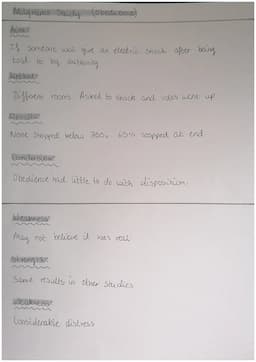 Milgrams Study (Obedience)
Aim:
If someone will give an electric shock after being
told to by authority
Method:
Different rooms. Asked to shock and volts went up
Results:
None stopped below 300v 65% stopped at end
Conclusion:
Obedience had little to do with disposition.
Weakness:
May not believe it was real
Strength:
Same results in other studies
Weakness:
Considerable distress